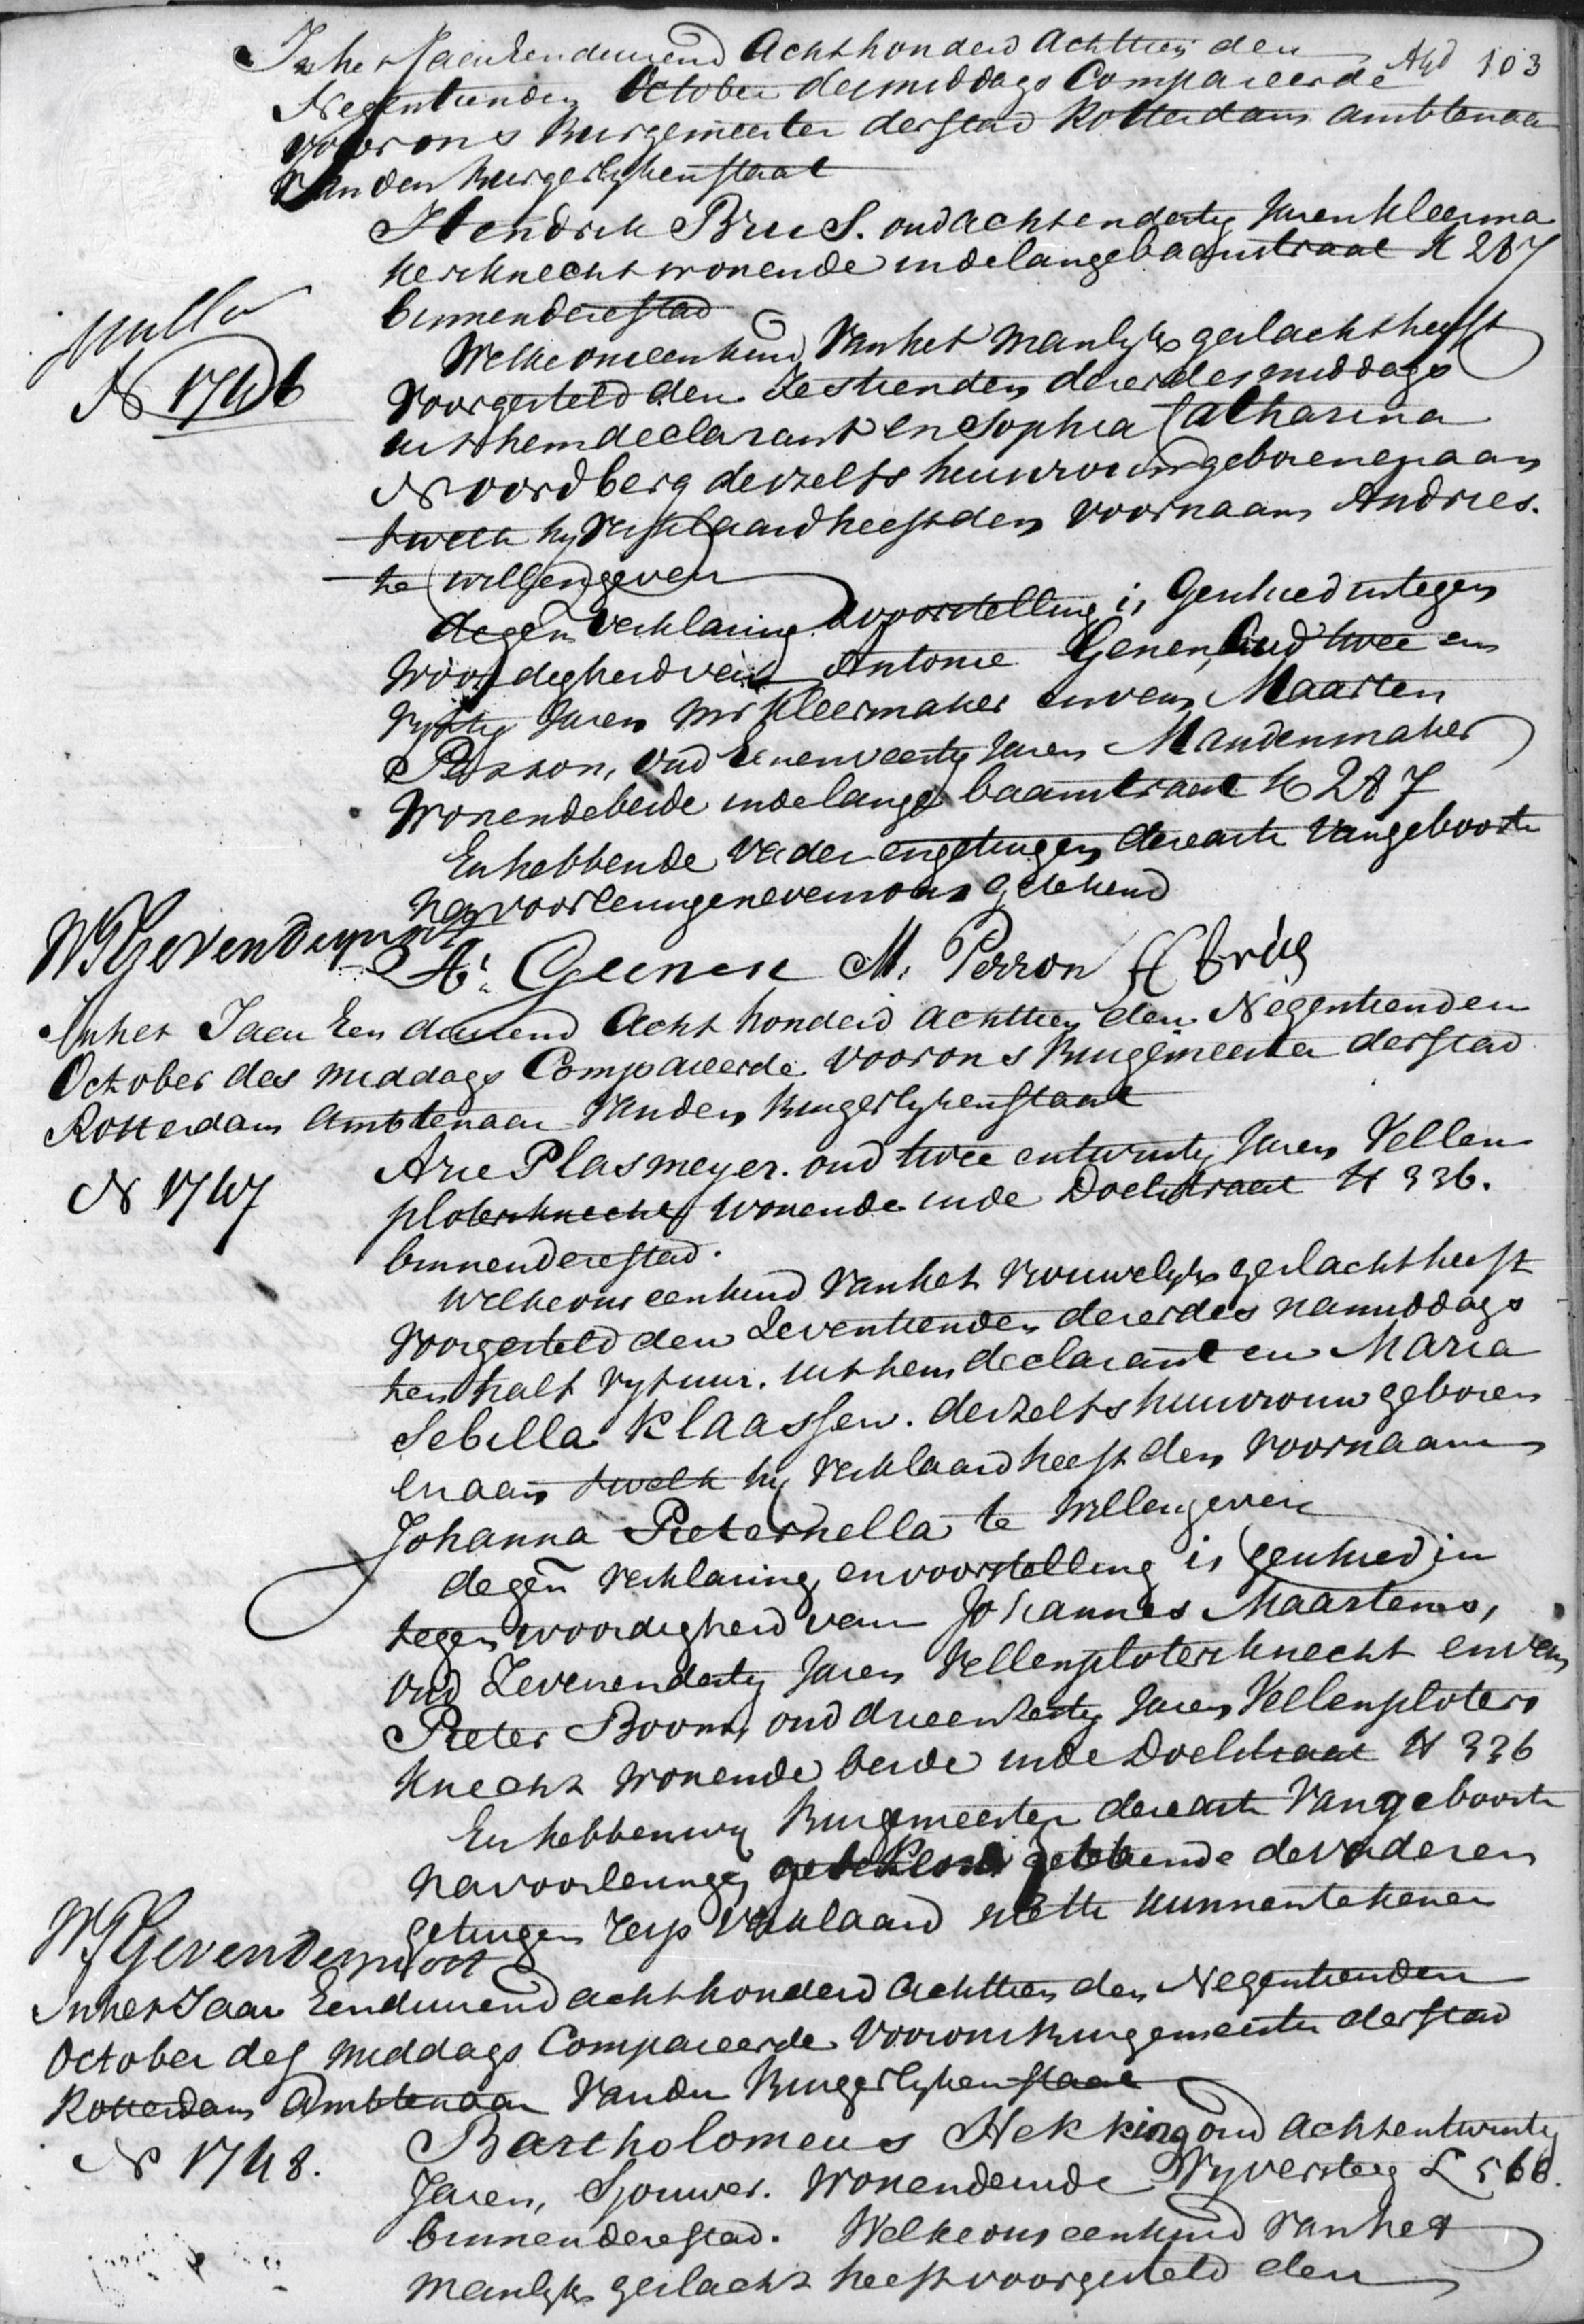 In het Jaar Eenduisend Achthonderd Achttien den
103
Negentienden October desmiddags Compareerde
voor ons Burgemeester der stad Rotterdam ambtenaar
van den Burgerlyken staat
Hendrik Brus. oud achtendertig Jaren kleerma
kersknecht wonende in de lange baanstraat K 287
binnen dese stad
Nulla
N 1746
Welke ons een kind van het manlyk geslacht heeft
voorgesteld den Zestienden deser des middags
uit hem declarant en Sophia Catharina
Noordberg deszelfs huisvrouw geboren en aan
twelk hy verklaard heeft den voornaam Andries.
te willen geven
degen verklaring & voorstelling is Geschied in tegen
woordigheid van Antonie Genen, Oud twee en
vyftig Jaren mr kleermaker en van Maarten
Perron, Oud Eenenveertig Jaren Mandenmaker
wonende beide in de lange baanstraat K 287
En hebbende vader en getuigen dese acte van geboorte
na voorlesing nevens ons getekend
WGevendeynoot
A: Geenen M. Perron H Brus
In het Jaar Een duisend Acht honderd achttien den Negentienden
October des middags Compareerde voor ons Burgemeester der stad
Rotterdam Ambtenaar van den Burgerlyken staat
N 1747
Arie Plasmeyer. oud twee en twintig Jaren Vellen
ploters knecht wonende in de Doelstraat H 336.
binnen dese stad.
Welke ons een kind van het vrouwelyk geslacht heeft
voorgesteld den Zeventienden deser des namiddags
ten half vyf uur. uit hem declarant en Maria
Sebilla Klaassen. deszelfs huisvrouw geboren
en aan twelk hy verklaard heeft den voornaam
Johanna Pieternella te willen geven
degen verklaring en voorstelling is geschied in
tegenwoordigheid van Johannes Maartens,
oud Zevenendertig Jaren Vellenploters knecht en van
Pieter Boom, oud drieendertig Jaren Vellenploters
knecht wonende beide in de Doelstraat H 336
En hebben wy Burgemeester dese acte van geboorte
na voorlesing getekend hebbende de vader en
getuigen verklaard niet te kunnen tekenen
WGevendeynoot
In het Jaar Eenduisend achthonderd Achttien den Negentienden
October des middags Compareerde voor ons Burgemeester der stad
Rotterdam Ambtenaar van den Burgerlyken staat
N 1748.
Bartholomeus Hekking oud achtentwintig
Jaren, Sjouwer. wonende in de Vyversteeg L 566.
binnen dese stad. Welke ons een kind van het
manlyk geslacht heeft voorgesteld den